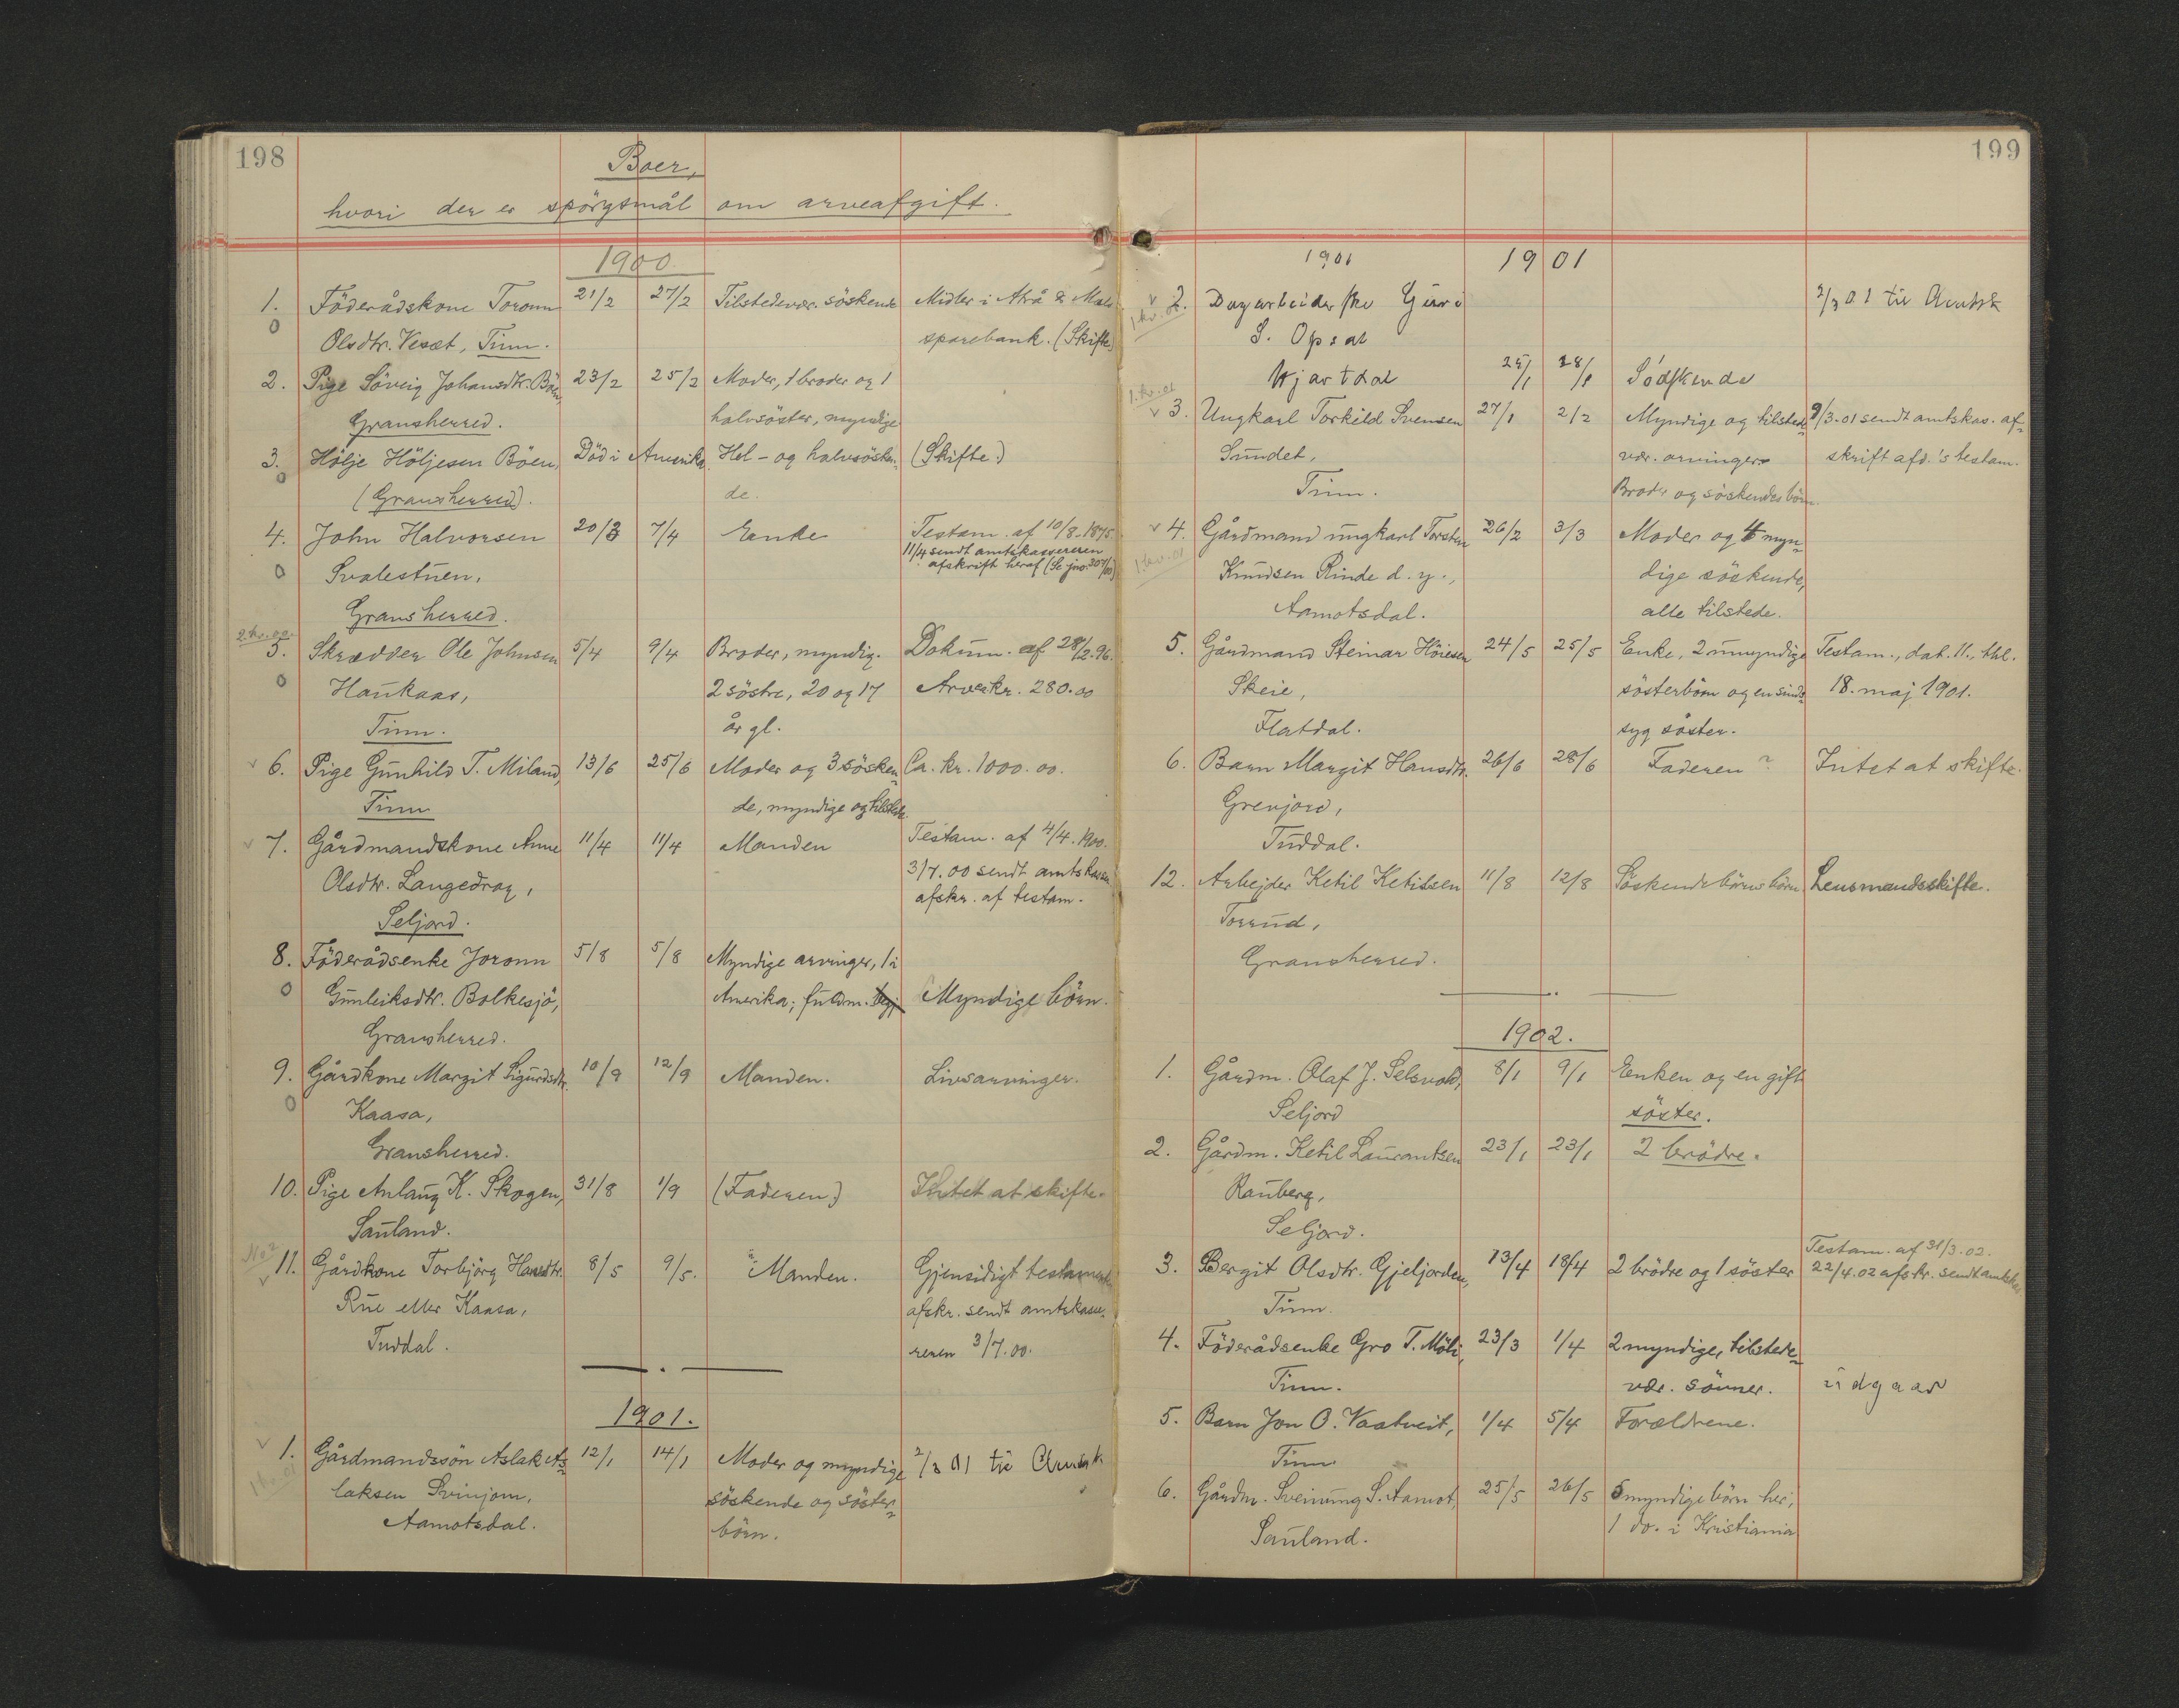 198
Boer,
hvori der er spörgsmål om arveafgift.
1900.
1. Föderådskone Toronn 21/2 27/2 Tilstedevær. söskende Midler i Atrå &
o Olsdtr. Vesæt, Tinn. sparebank. (Skifte)
2. Pige Söveig Johansdtr. Böen, 23/2 25/2 Moder, 1 broder og 1
Gransherred. halvsöster, myndige
3. Hölje Höljesen Böen, Död i Amerika. Hel- og halvsösken- (Skifte.)
o (Gransherred). de.
4. John Halvorsen 20/3 7/4 Enke Testam. af 10/8. 1875.
11/4 sendt amtskassereren
o Svalestuen, afskrift heraf (Se jno. 307/00)
Gransherred.
2. kv. 00.
5. Skrædder Ole Johnsen 5/4 9/4 Broder, myndig. Dokum. af 28/2.96.
o Haukaas, 2 söstre, 20 og 17 Arveskr. 280.00
Tinn. år gl.
v 6. Pige Gunhild T. Miland, 13/6 25/6 Moder og 3 sösken- Ca. kr. 1000.00.
Tinn de, myndige og tilstede.
v 7. Gårdmandskone Anne 11/4 11/4 Manden Testam. af 4/4. 1900.
3/7.00 sendt amtskassen
Olsdtr. Langedrag, afskr. af testam.
Seljord.
8. Föderådsenke Joronn 5/8 5/8 Myndige arvinger, 1 i
o Gunleiksdtr. Bolkesjö, Amerika; fuldm. Myndige börn.
Gransherred.
9. Gårdkone Margit Sigurdsdtr. 10/9 12/9 Manden. Livsarvinger.
o Kaasa,
Gransherred.
10. Pige Anlaug K. Skogen, 31/8 1/9 (Faderen.) Intet at skifte.
Sauland.
No 2
v 11. Gårdkone Torbjörg Hansdtr. 8/5 9/5. Manden. Gjensidigt testamente
Rue eller Kaasa, afskr. sendt amtskasse-
Tuddal. reren 3/7.00.
1901.
v 1. Gårdmandssön Aslak As- 12/1 14/1 Moder og myndige 2/3 01 til Amtsk
1 kv. 01 laksen Svinjom, söskende og söster-
Aamotsdal. börn.
199
1901 1901
v 2. Dagarbeiderske Guri 2/3 01 til Amtsk
1. kv. 01. S. Opsal
Hjartdal 25/1 28/1 Södskende
1. kv. 01
v 3. Ungkarl Torkild Svensen 27/1 2/2 Myndige og tilstede- 9/3.01 sendt amtskas. af-
Sundet, vær. arvinger. skrift afd.'s testam.
Tinn. Broder og söskendes börn.
v 4. Gårdmand ungkarl Torsten 26/2 3/3 Moder og 4 myn-
1. kv. 01 Knudsen Rinde d. y., dige söskende,
Aamotsdal. alle tilstede.
5. Gårdmand Steinar Höiesen 24/5 25/5 Enke, 2 umyndige Testam., dat. 11., thl.
Skeie, sösterbörn og en sinds- 18. maj 1901.
Flatdal. syg söster.
6. Barn Margit Hansdtr. 26/6 28/6 Faderen ? Intet at skifte.
Grenjord,
Tuddal.
12. Arbejder Ketil Ketilsen 11/8 12/8 Söskendebörns börn. Lensmandsskifte.
Torrud,
Gransherred.
1902.
1. Gårdm. Olaf J. Selsvold, 8/1 9/1 Enken og en gift
Seljord söster.
2. Gårdm. Ketil Laurantsen 23/1 23/1 2 brödre.
Rauberg,
Seljord.
Testam. af 31/3.02.
3. Bergit Olsdtr. Gjeljorden, 13/4 18/4 2 brödre og 1 söster 22/4.02 afskr. sendt amtskas
Tinn.
4. Föderådsenke Gro T. Möli, 23/3 1/4 2 myndige, tilstede-
Tinn. vær. sönner. udgaar
5. Barn Jon O. Vaatveit, 1/4 5/4 Forældrene.
Tinn
6. Gårdm. Sveinung S. Aamot, 25/5 26/5 5 myndige börn her,
Sauland. 1 do. i Kristiania